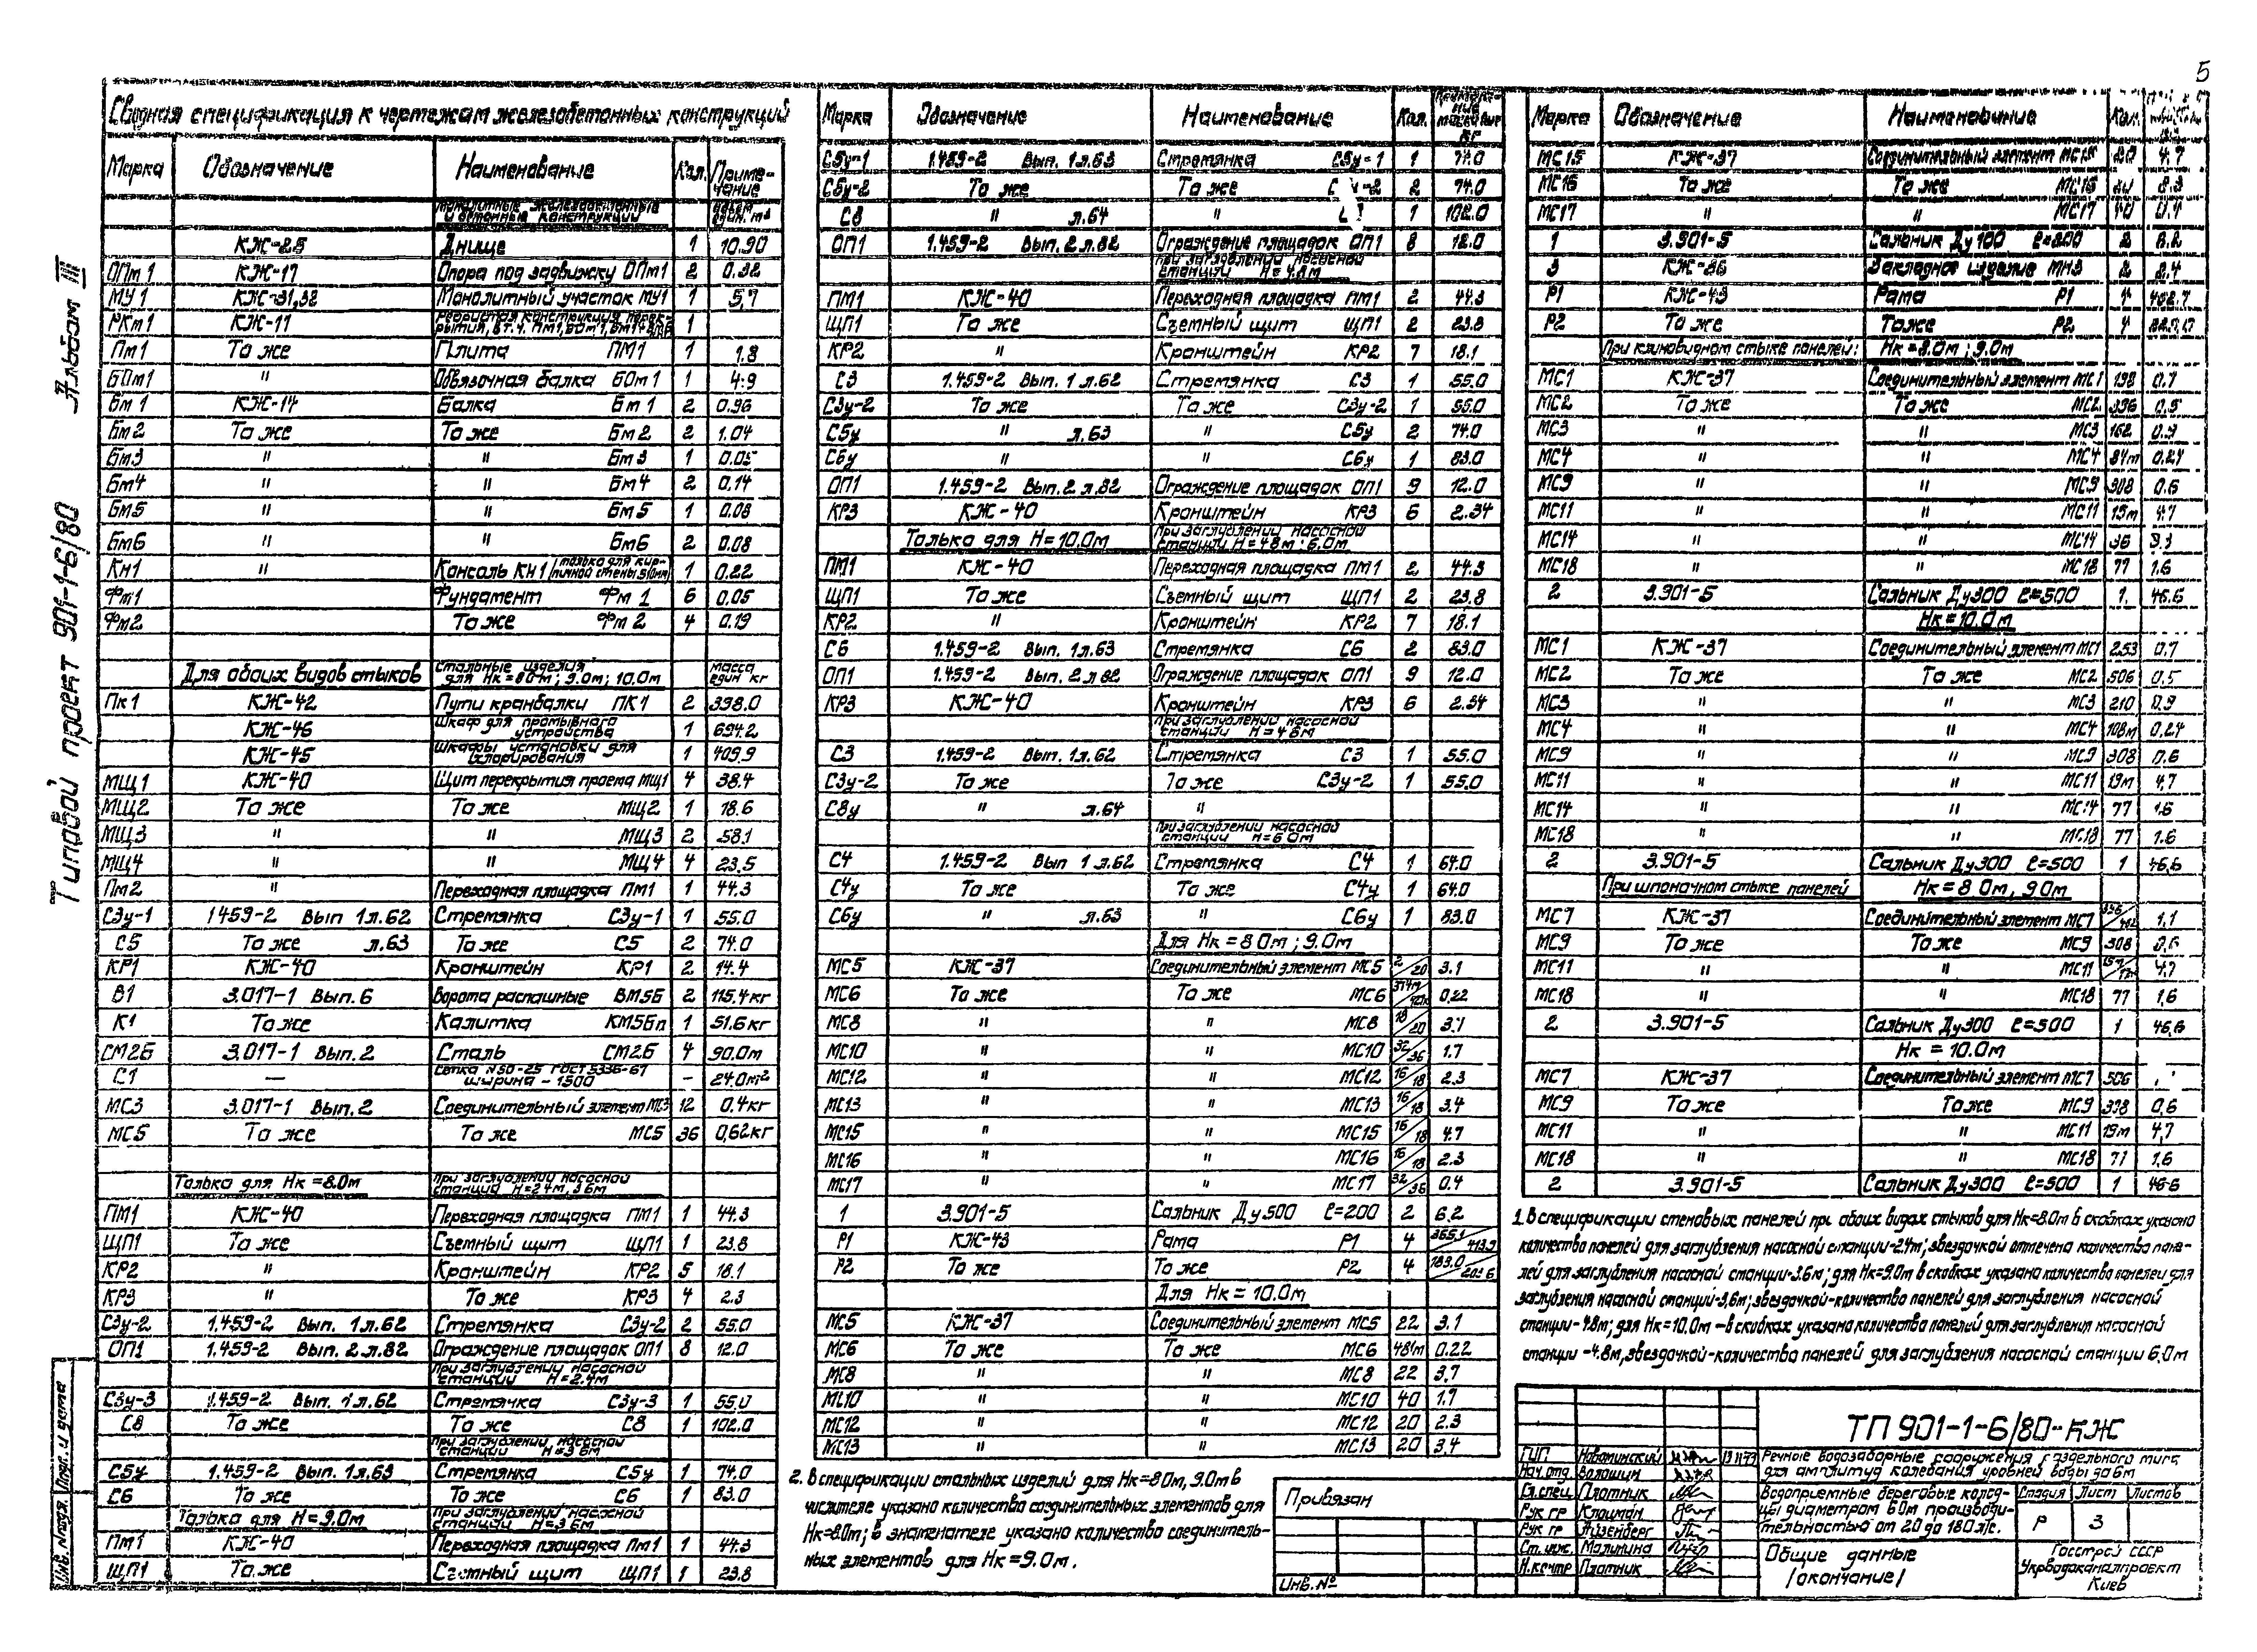 5
Типовой проект 901-1-6/80 Альбом III
Сводная спецификация к чертежам железобетонных конструкций
Марка Обозначение Наименование Кол. Приме-чание
Монолитные железобетонные и бетонные конструкции объем един. м³
КЖ-25 Днище 1 10.90
ОПм1 КЖ-17 Опора под задвижку ОПм1 2 0.32
МУ1 КЖ-31,32 Монолитный участок МУ1 1 5,7
РКм1 КЖ-11 1
Пм1 То же Плита ПМ1 1 1.8
БОм1 " Обвязочная балка БОм1 1 4.9
Бм1 КЖ-14 Балка Бм1 2 0.96
Бм2 То же То же Бм2 2 1.04
Бм3 " " Бм3 1 0.05
Бм4 " " Бм4 2 0.14
Бм5 " " Бм5 1 0.08
Бм6 " " Бм6 2 0.08
Кн1 " Консоль КН1 (только для кир-пичной стены 510мм) 1 0.22
Фм1 Фундамент Фм1 6 0.05
Фм2 То же Фм2 4 0.19
Для обоих видов стыков Стальные изделия для Нк=8.0м; 9.0м; 10.0м масса един кг
Пк1 КЖ-42 Пути кранбалки ПК1 2 398.0
КЖ-46 Шкаф для промывного устройства 1 694.2
КЖ-45 Шкафы установки для хлорирования 1 409.9
МЩ1 КЖ-40 Щит перекрытия проема МЩ1 4 38.4
МЩ2 То же То же МЩ2 1 18.6
МЩ3 " " МЩ3 2 58.1
МЩ4 " " МЩ4 4 23.5
Пм2 " Переходная площадка ПМ1 1 44.3
С3у-1 1459-2 Вып 1 л.62 Стремянка С3у-1 1 55.0
С5 То же л.63 То же С5 2 74.0
КР1 КЖ-40 Кронштейн КР1 2 14.4
В1 3.017-1 Вып. 6 Ворота распашные ВМ5Б 2 115,4кг
К1 То же Калитка КМ5Бп 1 51.6кг
СМ2Б 3.017-1 Вып. 2 Сталь СМ2Б 4 90.0м
С1 — Сетка N50-25 ГОСТ 5336-67 ширина-1500 - 24.0м²
МС3 3.017-1 Вып. 2 Соединительный элемент МС3 12 0.4кг
МС5 То же То же МС5 36 0,62кг
Только для Нк=8.0м При заглублении насосной станции Н=2.4м, 3.6м
ПМ1 КЖ-40 Переходная площадка ПМ1 1 44.3
ЩП1 То же Съемный щит ЩП1 1 23.8
КР2 " Кронштейн КР2 5 18.1
КР3 " То же КР3 4 2.3
С3у-2 1.459-2 Вып. 1 л.62 Стремянка С3у-2 2 55.0
ОП1 1.459-2 Вып. 2 л.82 Ограждение площадок ОП1 8 12.0
При заглублении насосной станции Н=2.4м
С3у-3 1.459-2 Вып. 1 л.62 Стремянка С3у-3 1 55.0
С8 То же То же С8 1 102.0
При заглублении насосной станции Н=3.6м
С5у 1.459-2 Вып. 1 л.63 Стремянка С5у 1 74.0
С6 То же То же С6 1 83.0
Только для Н=9.0м При заглублении насосной станции Н=3.6м
ПМ1 КЖ-40 Переходная площадка Пм1 1 44.3
ЩП1 То же Съемный щит ЩП1 1 23.8
Марка Обозначение Наименование Кол.
С5у-1 1.459-2 Вып. 1 л.63 Стремянка С5у-1 1 74.0
С5у-2 То же То же 2 74.0
С8 " л.64 " 1 102.0
ОП1 1.459-2 Вып. 2 л.82 Ограждение площадок ОП1 8 12.0
При заглублении насосной станции Н=4.8м
ПМ1 КЖ-40 Переходная площадка ПМ1 2 44.3
ЩП1 То же Съемный щит ЩП1 2 23.8
КР2 " Кронштейн КР2 7 18.1
С3 1.459-2 Вып. 1 л.62 Стремянка С3 1 55.0
С3у-2 То же То же С3у-2 1 55.0
С5у " л.63 " С5у 2 74.0
С6у " " С6у 1 83.0
ОП1 1.459-2 Вып. 2 л.82 Ограждение площадок ОП1 9 12.0
КР3 КЖ-40 Кронштейн КР3 6 2.34
Только для Н=10.0м При заглублении насосной станции Н=4.8м; 6.0м
ПМ1 КЖ-40 Переходная площадка ПМ1 2 44.3
ЩП1 То же Съемный щит ЩП1 2 23.8
КР2 " Кронштейн КР2 7 18.1
С6 1.459-2 Вып. 1 л.63 Стремянка С6 2 83.0
ОП1 1.459-2 Вып. 2 л 82 Ограждение площадок ОП1 9 12.0
КР3 КЖ-40 Кронштейн КР3 6 2.34
При заглублении насосной станции Н=4.8м
С3 1.459-2 Вып. 1 л.62 Стремянка С3 1 55.0
С3у-2 То же То же С3у-2 1 55.0
С8у " л.64 "
При заглублении насосной станции Н=6.0м
С4 1.459-2 Вып 1 л.62 Стремянка С4 1 64.0
С4у То же То же С4у 1 64.0
С6у " л.63 " С6у 1 83.0
Для Нк=8.0м; 9.0м
МС5 КЖ-37 Соединительный элемент МС5 2/20 3.1
МС6 То же То же МС6 0.22
МС8 " " МС8 18/20 3.7
МС10 " " МС10 32/36 1.7
МС12 " " МС12 16/18 2.3
МС13 " " МС13 16/18 3.4
МС15 " " МС15 16/18 4.7
МС16 " " МС16 16/18 2.3
МС17 " " МС17 32/36 0.4
1 3.901-5 Сальник Ду500 ℓ=200 2 6.2
Р1 КЖ-43 Рама Р1 4 365.1/413.9
Р2 То же То же Р2 4
Для Нк=10.0м
МС5 КЖ-37 Соединительный элемент МС5 22 3.1
МС6 То же То же МС6 484м 0.22
МС8 " " МС8 22 3.7
МС10 " " МС10 40 1.7
МС12 " " МС12 20 2.3
МС13 " " МС13 20 3.4
2. В спецификации стальных изделий для Нк=8.0м, 9.0м в
числителе указано количество соединительных элементов для
Нк=8.0м; в знаменателе указано количество соединитель-
ных элементов для Нк=9.0м.
Марка Обозначение Наименование Кол.
МС15 КЖ-37 Соединительный элемент МС15 20 4.7
МС16 То же То же МС16
МС17 " " МС17 40
1 3.901-5 Сальник Ду100 ℓ=200 2
3 КЖ-36 Закладное изделие МН3 2 2.4
Р1 КЖ-43 Рама Р1 4
Р2 То же То же Р2 4
При клиновидном стыке панелей: Нк=8.0м; 9.0м
МС1 КЖ-37 Соединительный элемент МС1 198 0.7
МС2 То же То же МС2 396 0.5
МС3 " " МС3 162 0.9
МС4 " " МС4 84м 0.24
МС9 " " МС9 308 0.6
МС11 " " МС11 15м 4.7
МС14 " " МС14 36 3.1
МС18 " " МС18 77 1.6
2 3.901-5 Сальник Ду300 ℓ=500 1 46.6
Нк=10.0м
МС1 КЖ-37 Соединительный элемент МС1 253 0.7
МС2 То же То же МС2 506 0.5
МС3 " " МС3 210 0.9
МС4 " " МС4 108м 0.24
МС9 " " МС9 308 0.6
МС11 " " МС11 19м 4,7
МС14 " " МС14 77 1.6
МС18 " " МС18 77 1.6
2 3.901-5 Сальник Ду300 ℓ=500 1 46.6
При шпоночном стыке панелей Нк=8.0м, 9.0м
МС7 КЖ-37 Соединительный элемент МС7 1.1
МС9 То же То же МС9 308 0.6
МС11 " " МС11 4.7
МС18 " " МС18 77 1.6
2 3.901-5 Сальник Ду300 ℓ=500 1 46.6
Нк=10.0м
МС7 КЖ-37 Соединительный элемент МС7 506
МС9 То же То же МС9 398 0,6
МС11 " " МС11 19м 4,7
МС18 " " МС18 71 1.6
2 3.901-5 Сальник Ду300 ℓ=500 1 46.6
1. В спецификации стеновых панелей при обоих видах стыков для Нк=8.0м в скобках указано
количество панелей для заглубления насосной станции-2.4м; звездочкой отмечена количество пане-
лей для заглубления насосной станции-3.6м; для Нк=9.0м в скобках указано количество панелей для
заглубления насосной станции-3,6м; звездочкой-количество панелей для заглубления насосной
станции-4.8м; для Нк=10.0м -в скобках указано количество панелей для заглубления насосной
станции-4.8м, звездочкой-количество панелей для заглубления насосной станции 6.0м
ТП 901-1-6/80-КЖ
ГИП Новаминский
Нач.отд. Волошин
Гл.спец. Плотник
Рук гр Клоцман
Рук гр Айзенберг
Ст. инж. Малинина
Н.контр Плотник
Речные водозаборные сооружения раздельного типа
для амплитуд колебания уровней воды до 6м
Водоприемные береговые колод-
цы диаметром 6.0м производи-
тельностью от 20 до 180 л/с.
Стадия Лист Листов
Р 3
Общие данные
/окончание/
Госстрой СССР
Укрводоканалпроект
Киев
Привязан
Инв. №
Инв. № подл. Подп. и дата